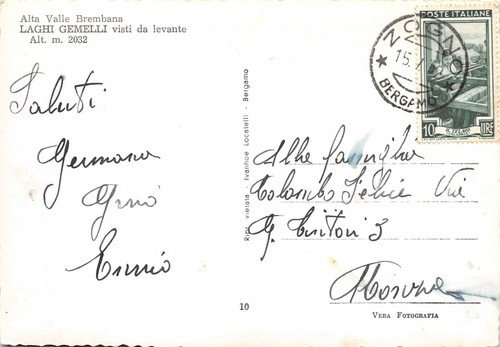 Alta Valle Brembana
LAGHI GEMELLI visti da levante
Alt. m. 2032
Saluti
Germana
Ennio
Ripr. vietata Ivanhoe Locatelli - Bergamo
10
ZOGNO
15.
BERGAMO
POSTE ITALIANE
10 LIRE
Alla famiglia
Colombo Felice Via
G.
3
VERA FOTOGRAFIA